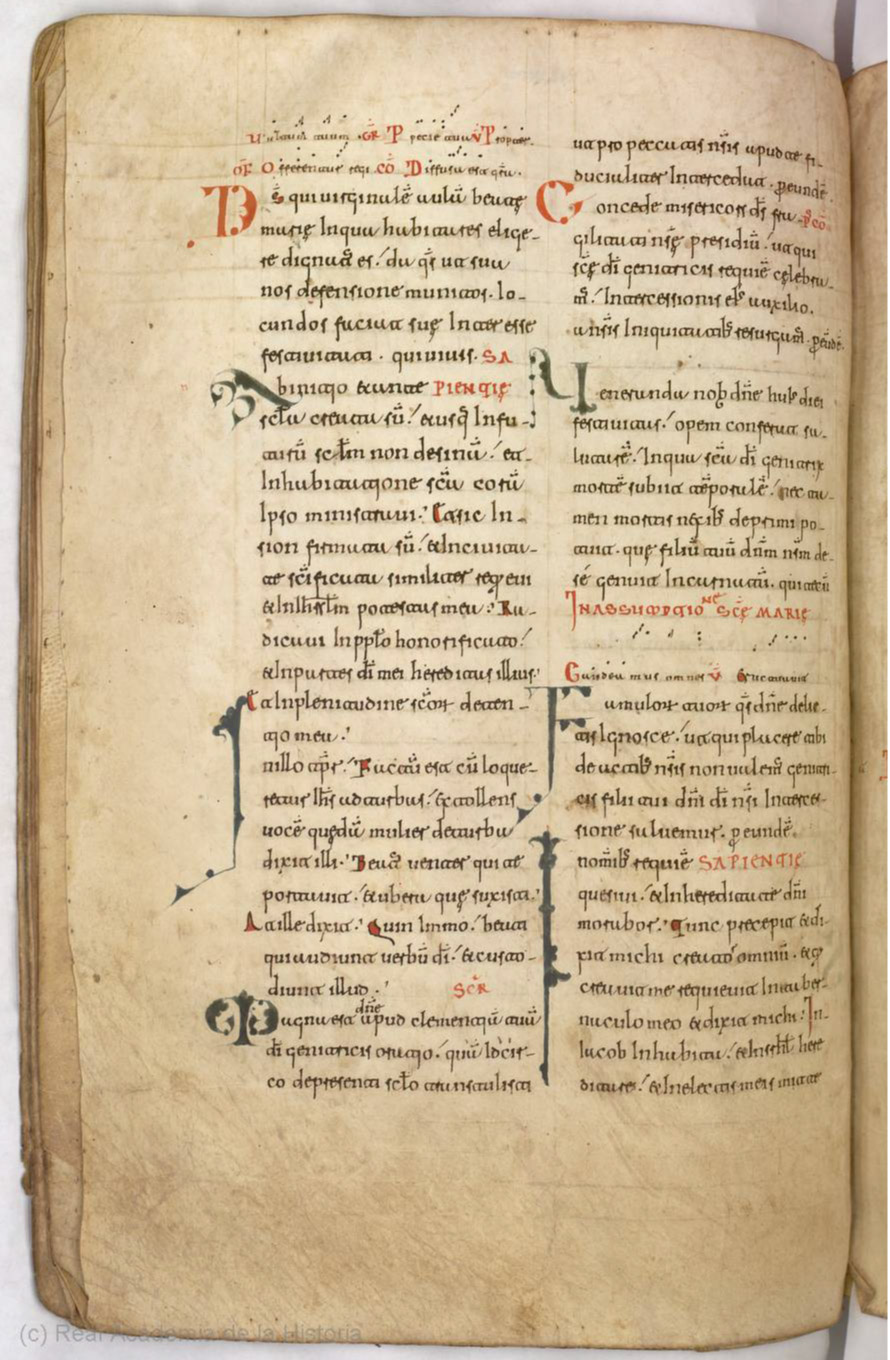 Uultum tuum. GR P Specie tua V Propter.
OF Offerentur regi. CO Diffusa est gra.
Ds qui uirginalē aulā beatę
marię In qua habitares elige-
re dignatꝰ es / da qs ut sua
nos defensione munitos. Io-
cundos faciat suę Interesse
festiuitati. qui uiuis. SA
Ab initio & ante PIENTIE
scła creata sū / & usq Infu-
turū sclm non desinā / et
Inhabitatione scā corā
Ipso ministraui. Et sic In
sion firmata sū / & In ciuita-
te scificata similiter requieui
& In ihrslm potestas mea. Ra-
dicaui In pplo honorificato /
& In partes di mei hereditas illius.
Et In plenitudine scōꝝ deten-
tio mea.
In illo tpr. Factū est cū loque-
retur ihs ad turbas / Extollens
uocē quędā mulier de turba
dixit illi. Beatꝰ uenter qui te
portauit. & ubera quę suxisti.
At ille dixit. Quin Immo / beati
qui audiunt uerbū di / & custo-
diunt illud. SCR
Magna est dne apud clementiā tuā
di genitricis oratio. quā Idcir-
co de presenti sclo transtulisti
ut pro peccatis nsis apud te fi-
ducialiter Intercedat. p eundē.
Concede misericors ds fra- P CO
gilitati nsę presidiū / ut qui
scę di genitricis requiē celebra-
mꝰ / Intercessionis eiꝰ auxilio.
a nsis Iniquitatibꝰ resurgamꝰ. p eundē.
Ueneranda nob dne huiꝰ diei
festiuitas / opem conferat sa-
lutarē. In qua scā di genitrix
mortē subiit tēporalē / nec ta-
men mortis nexibꝰ deprimi po-
tuit. que filiū tuū dnm nsm de
se genuit Incarnatū. qui tecū
IN ASSUMPTIONE SCE MARIE
Gaudeamus omnes V Eructauit
Famuloꝝ tuoꝝ qs dne delic-
tis Ignosce / ut qui placere tibi
de actibꝰ nsis non ualemꝰ genitri-
cis filii tui dni di nsi Interces-
sione saluemur. p eundē.
In omībꝰ requiē SAPIENTIE
quesiui. & In hereditate dni
morabor. Tunc precepit & di-
xit michi creator omniū. & q
creauit me requieuit In taber-
naculo meo & dixit michi. In
Iacob Inhabita / & In isrhl here
ditare / & In electis meis mitte